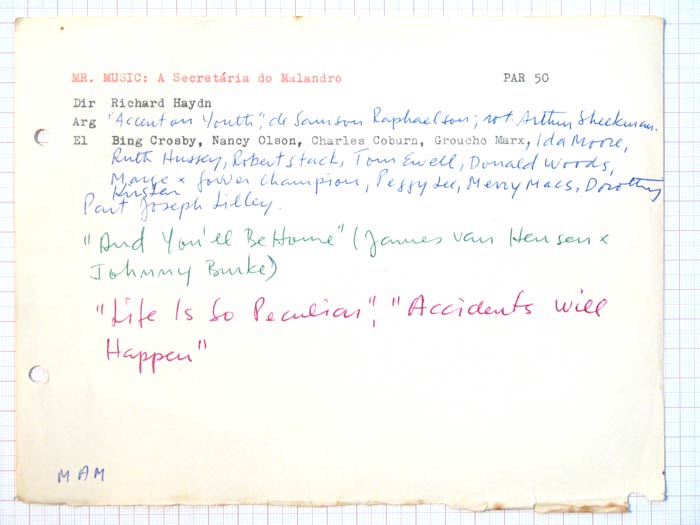 MR. MUSIC: A Secretária do Malandro PAR 50
Dir Richard Haydn
Arg "Accent on Youth", de Samson Raphaelson; rot. Arthur Sheekman.
El Bing Crosby, Nancy Olson, Charles Coburn, Groucho Marx, Ida Moore,
Ruth Hussey, Robert Stack, Tom Ewell, Donald Woods,
Marge x Gower Champion, Peggy Lee, Merry Macs, Dorothy
Kirsten
Part Joseph Lilley.
"And You'll Be Home" (James van Heusen x
Johnny Burke)
"Life Is So Peculiar", "Accidents Will
Happen"
MAM